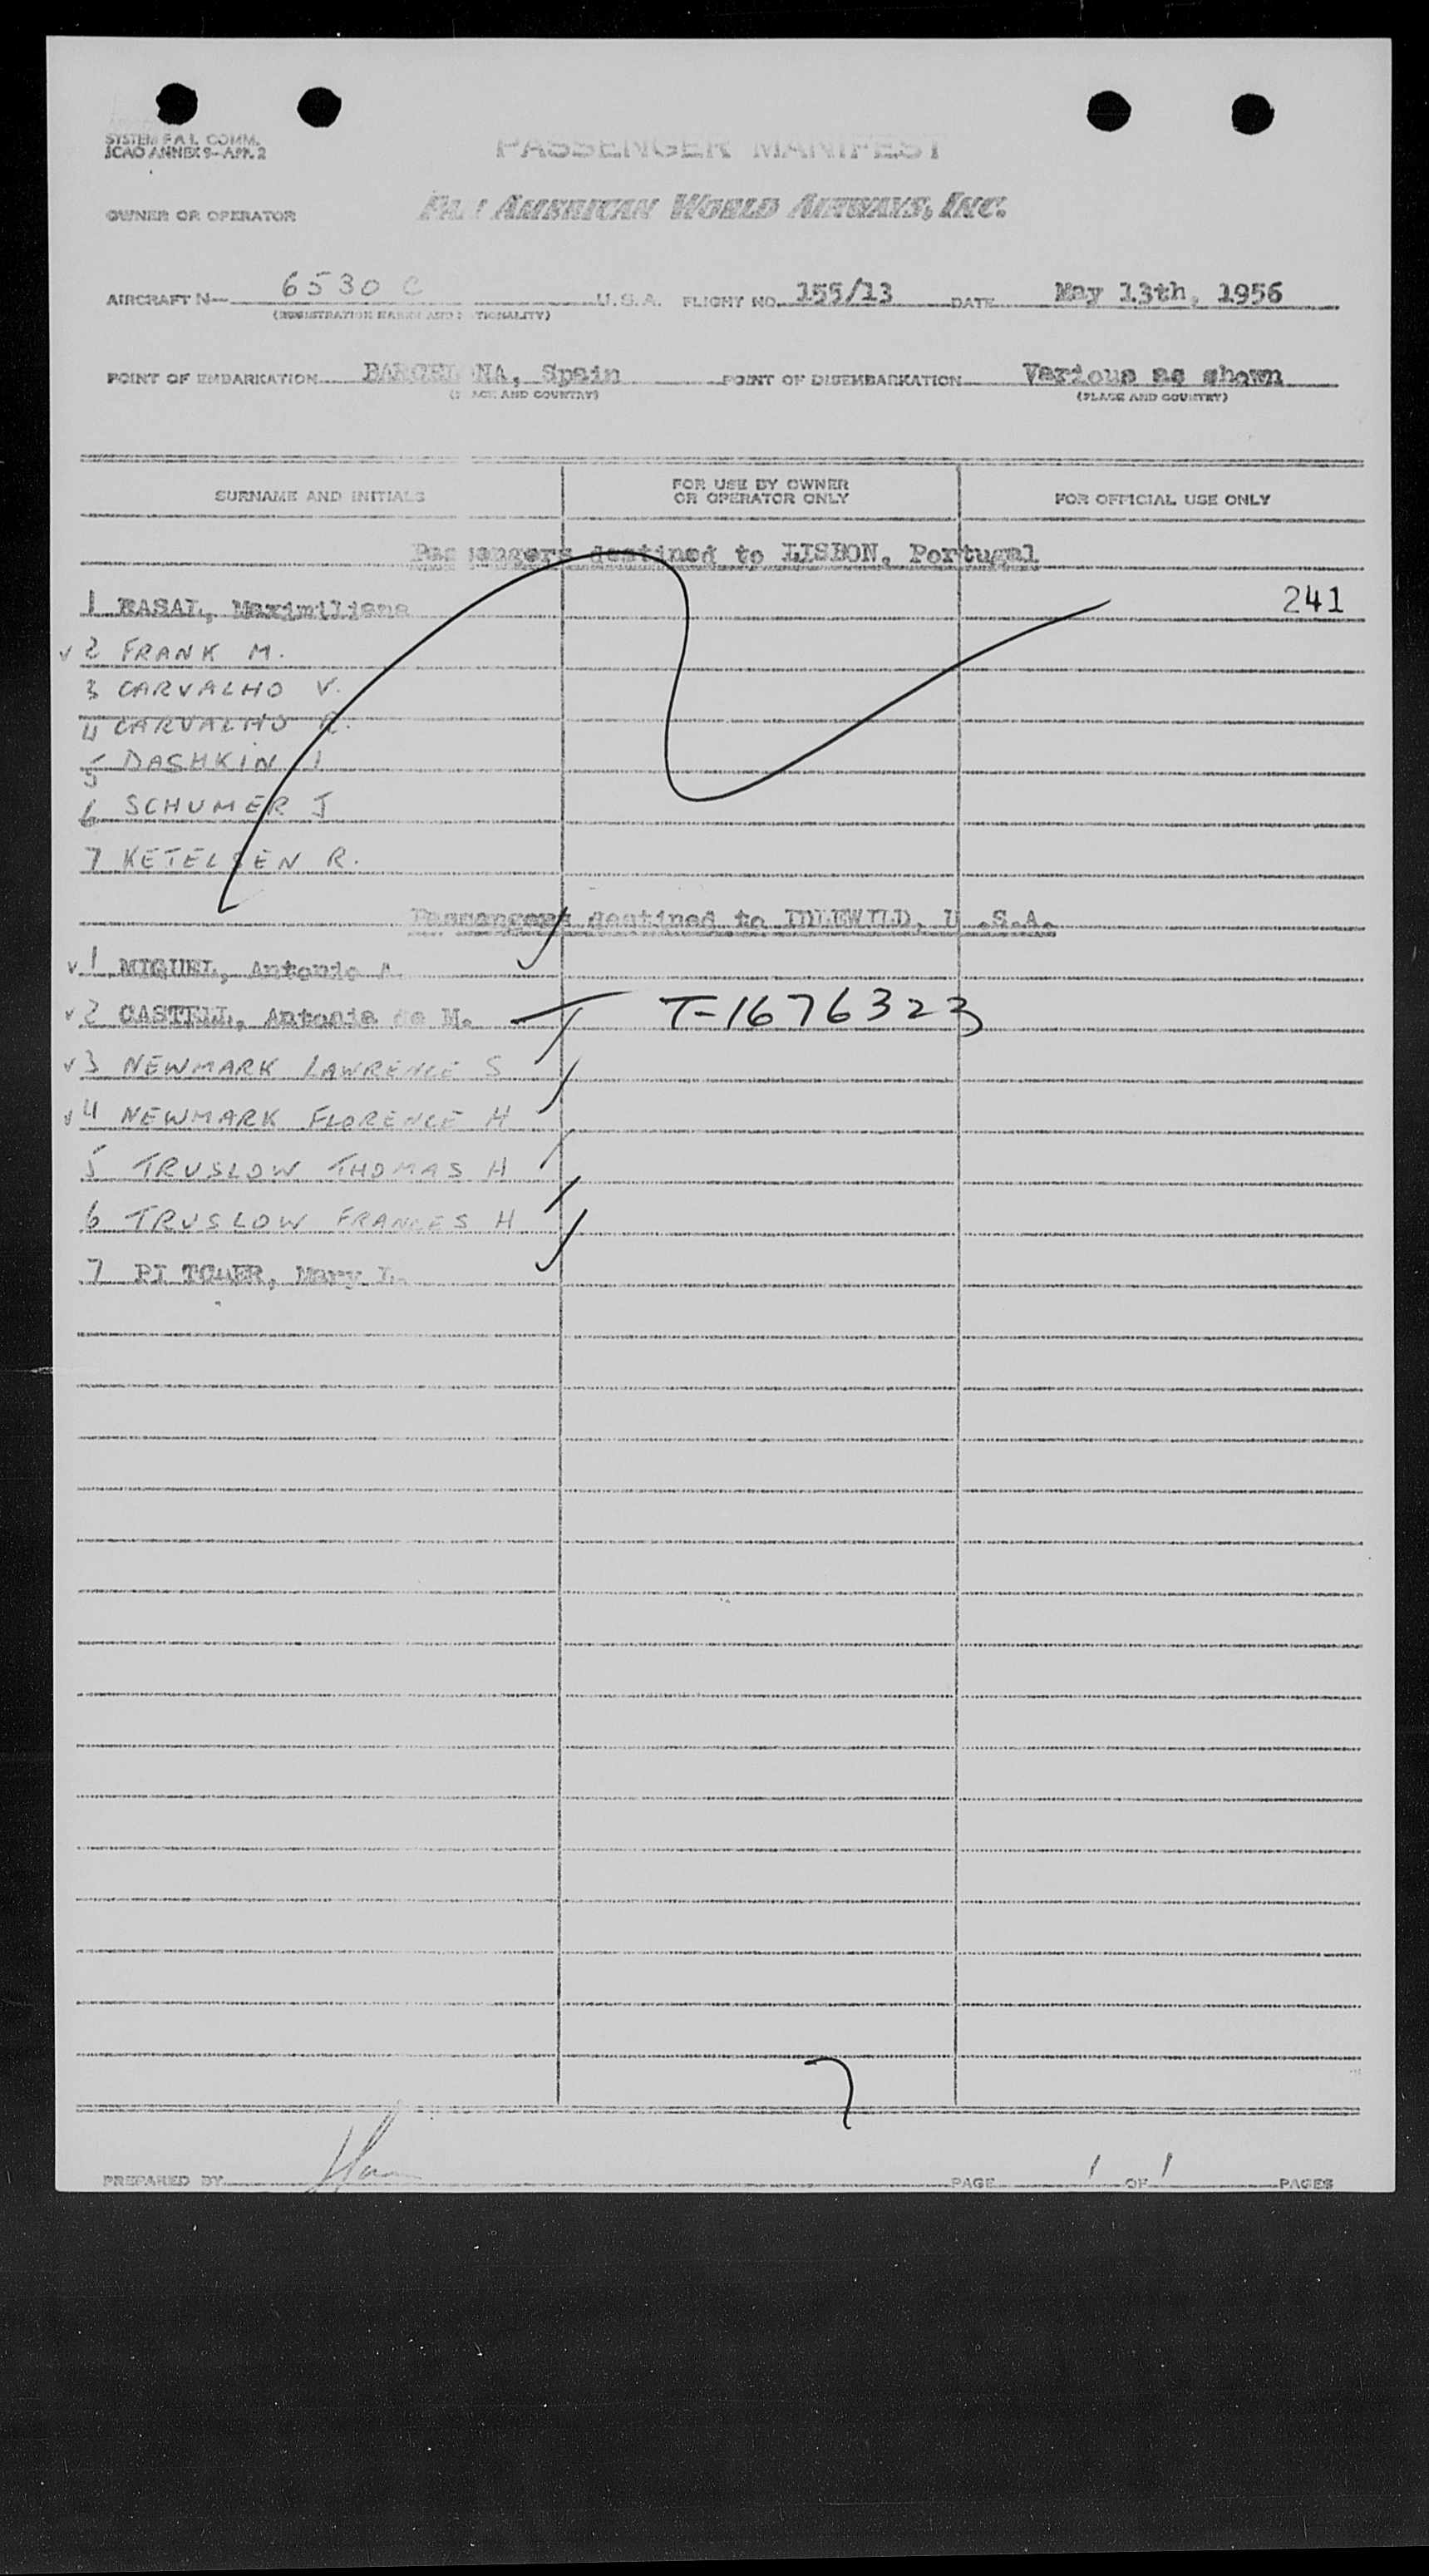 SYSTEM F.A.L. COMM.
ICAO ANNEX 9-APP. 2
PASSENGER MANIFEST
OWNER OR OPERATOR PAN AMERICAN WORLD AIRWAYS, INC.
AIRCRAFT N- 6530 C U.S.A. FLIGHT NO. 155/13 DATE May 13th, 1956
(REGISTRATION MARKS AND NATIONALITY)
POINT OF EMBARKATION BARCELONA, Spain POINT OF DISEMBARKATION Various as shown
(PLACE AND COUNTRY) (PLACE AND COUNTRY)
SURNAME AND INITIALS FOR USE BY OWNER OR OPERATOR ONLY FOR OFFICIAL USE ONLY
Passengers destined to LISBON, Portugal
1 Maximiliano 241
v 2 FRANK M.
3 CARVALHO V.
4 CARVALHO R.
5 DASHKIN I
6 SCHUMER J
7 KETELSEN R.
Passengers destined to IDLEWILD, U.S.A.
v 1 MIGUEL, Antonio A.
v 2 CASTELL, Antonia de M. T T-1676323
v 3 NEWMARK LAWRENCE S
v 4 NEWMARK FLORENCE H
5 TRUSLOW THOMAS H
6 TRUSLOW FRANCES H
7 Mary L.
7
PREPARED BY PAGE 1 OF 1 PAGES